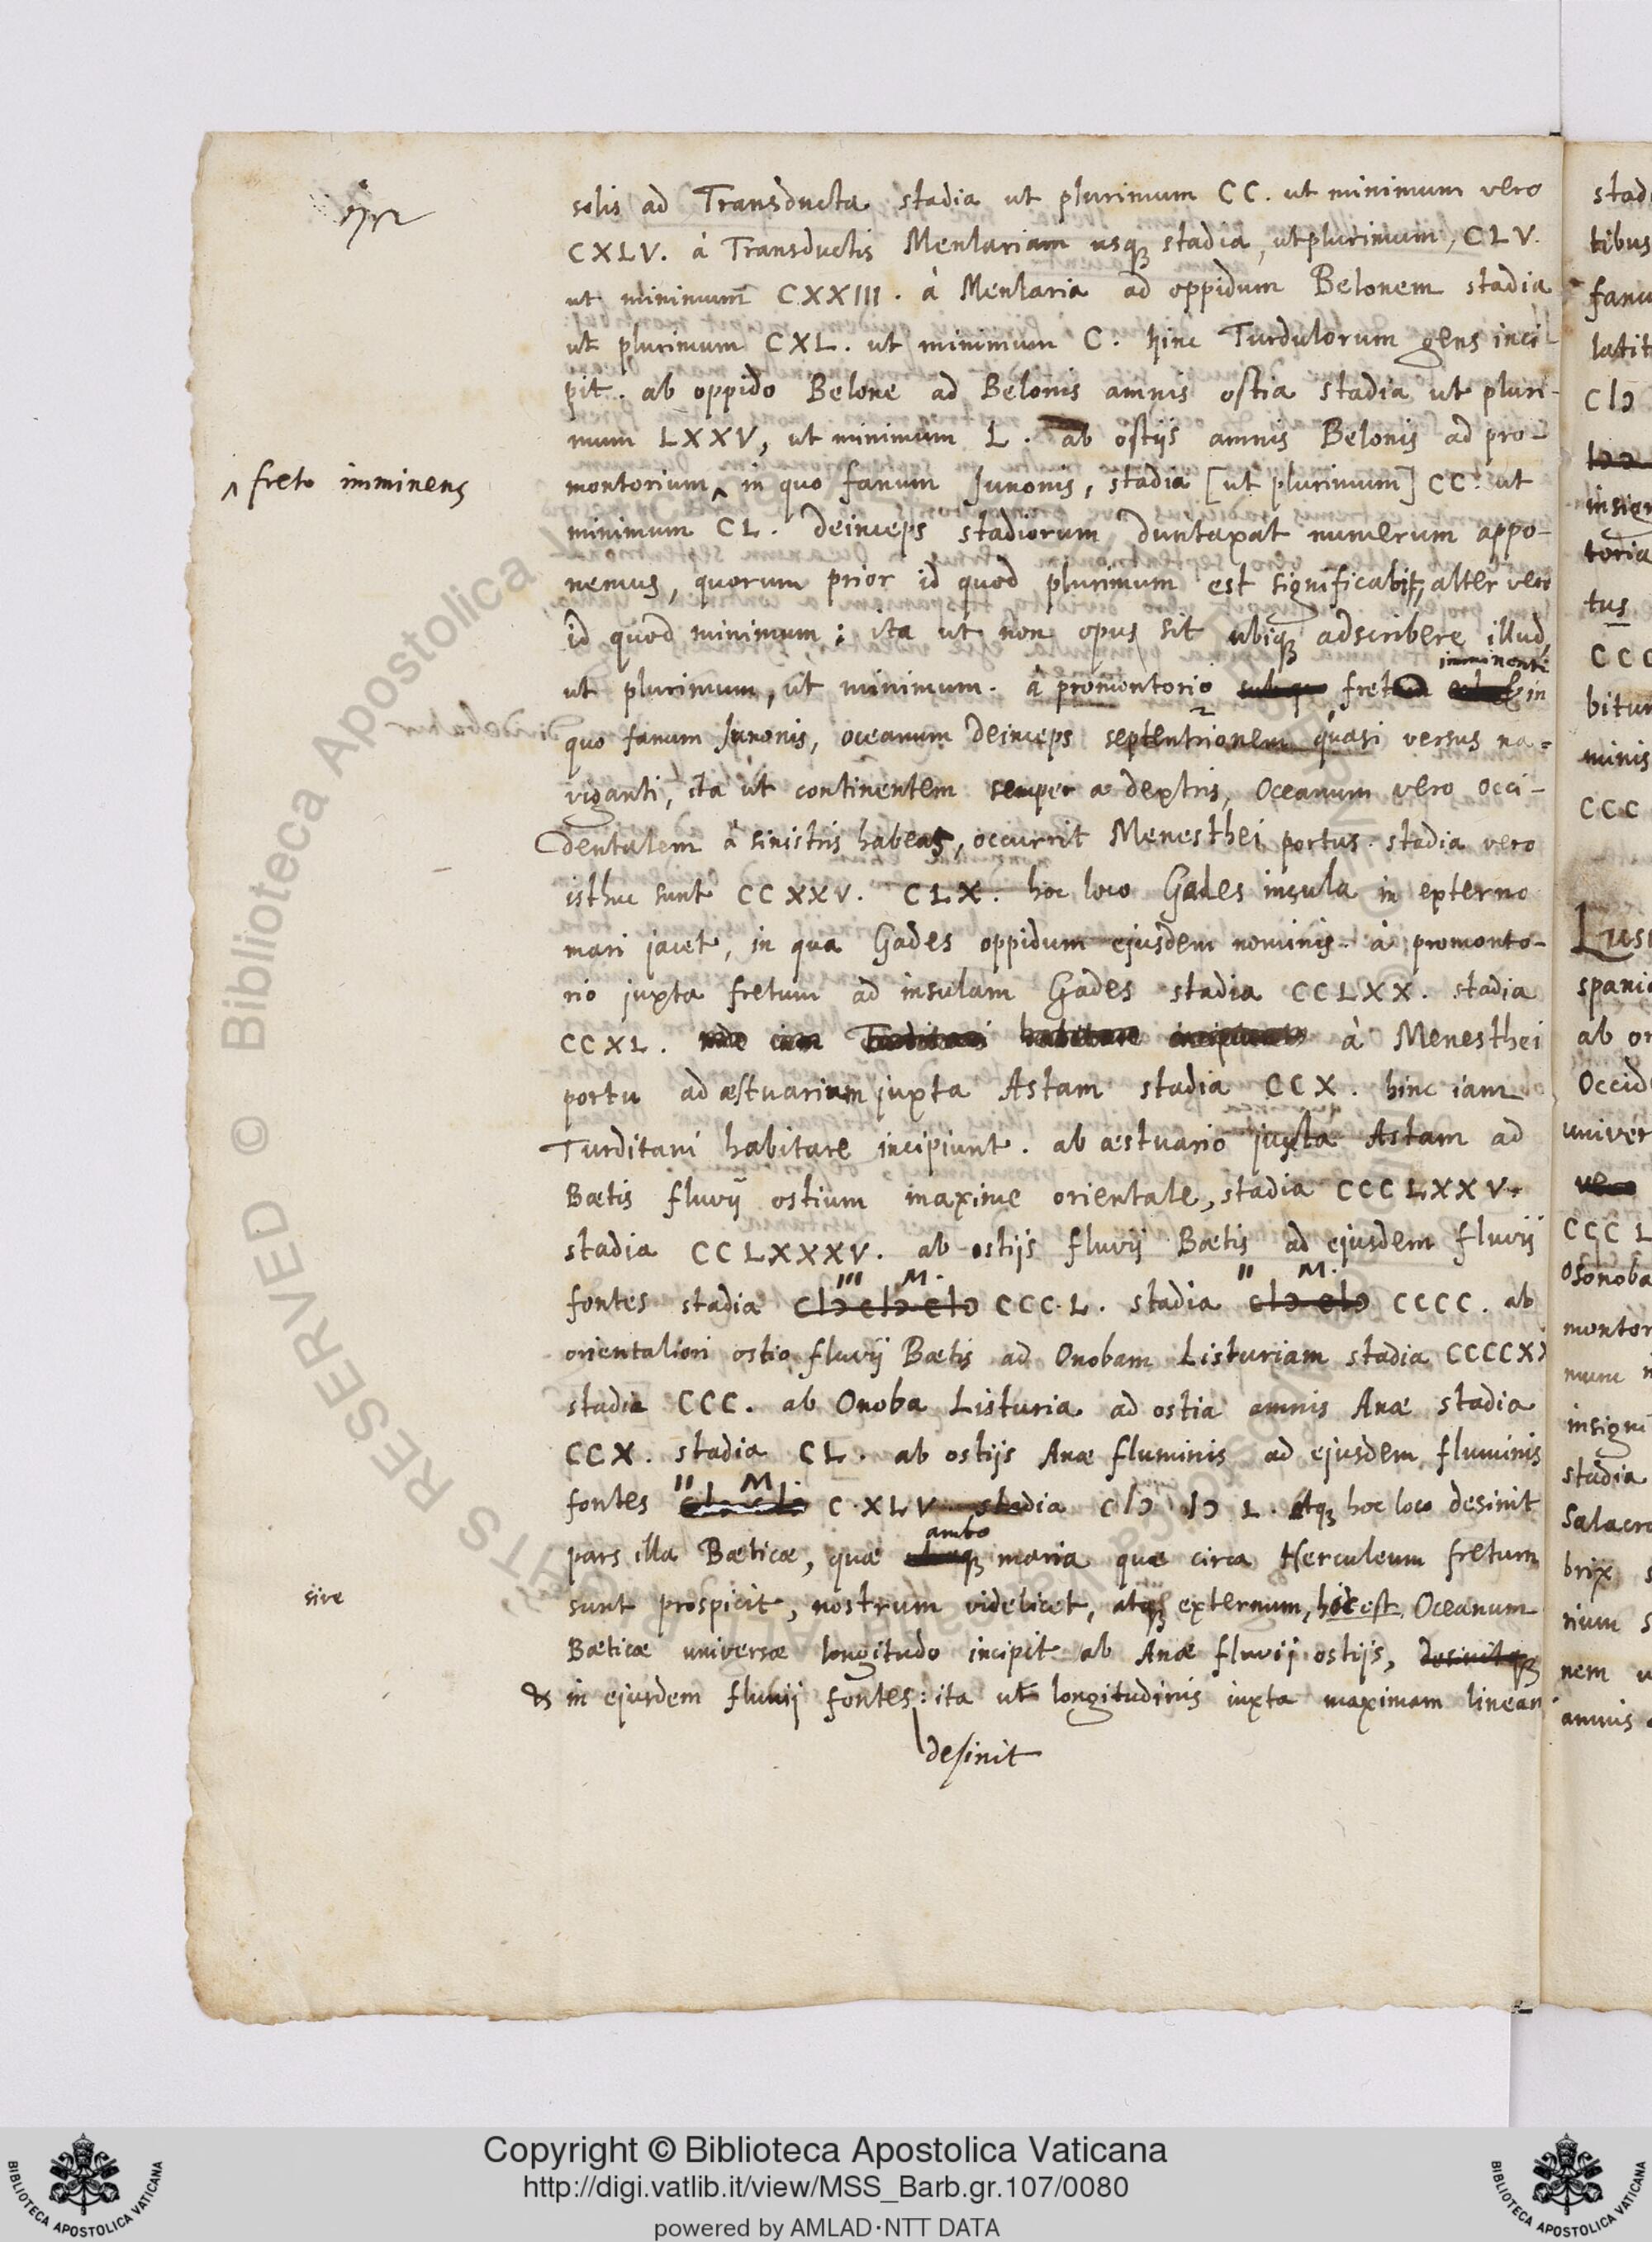 solis ad Transducta stadia ut plurimum CC. ut minimum vero
CXLV. à Transductis Menlariam usqꝫ stadia, utplurimum, CLV.
ut minimum CXXIII. à Menlaria ad oppidum Belonem stadia
ut plurimum CXL. ut minimum C. hinc Turdulorum gens inci-
pit. ab oppido Belone ad Belonis amnis ostia stadia ut pluri-
mum LXXV, ut minimum L. ab ostijs amnis Belonis ad pro-
^ freto imminens
montorium^ in quo fanum Junonis, stadia [ut plurimum] CC. ut
minimum CL. deinceps stadiorum duntaxat numerum appo-
nemus, quorum prior id quod plurimum est significabit, alter vero
id quod minimum: ita ut non opus sit ubiqꝫ adscribere illud,
imminenti
ut plurimum, ut minimum. à promontorio freto in
quo fanum Junonis, oceanum deinceps septentrionem quasi versus na-
viganti, ita ut continentem semper a dextris, Oceanum vero occi-
dentalem à sinistris habeas, occurrit Menesthei portus. stadia vero
isthuc sunt CCXXV. CLX. hoc loco Gades insula in externo
mari jacet, in qua Gades oppidum ejusdem nominis. à promonto-
rio juxta fretum ad insulam Gades stadia CCLXX. stadia
CCXL. inde iam Turditani habitare incipiunt à Menesthei
portu ad æstuarium juxta Astam stadia CCX. hinc iam
Turditani habitare incipiunt. ab æstuario juxta Astam ad
Bætis fluvij ostium maxime orientale, stadia CCCLXXV.
stadia CCLXXXV. ab ostijs fluvij Bætis ad ejusdem fluvij
III M. II M.
fontes stadia cIɔ cIɔ cIɔ CCC.L. stadia cIɔ cIɔ CCCC. ab
orientaliori ostio fluvij Bætis ad Onobam Listuriam stadia CCCCXX
stadia CCC. ab Onoba Listuria ad ostia amnis Anæ stadia
CCX. stadia CL. ab ostijs Anæ fluminis ad ejusdem fluminis
II M.
fontes cIɔ cIɔ C.XLV stadia cIɔ Iɔ L. Atqꝫ hoc loco desinit
ambo
pars illa Bæticæ, quæ maria quæ circa Herculeum fretum
sive
sunt prospicit, nostrum videlicet, atqꝫ externum, hoc est Oceanum
Bæticæ universæ longitudo incipit ab Anæ fluvij ostijs, desinitqꝫ
& in ejusdem fluvij fontes: ita ut longitudinis iuxta maximam lineam
desinit
stad
tibus
fanu
latit
cIɔ
insign
toria
tus
CCC
bitur
minis
CCC
Lusi
spanic
ab or
Occid
univer
vero
CCC L
Osonoba
montor
num
insigni
stadia
Salacr
brix s
rium s
nem u
amnis
Copyright © Biblioteca Apostolica Vaticana
http://digi.vatlib.it/view/MSS_Barb.gr.107/0080
powered by AMLAD·NTT DATA
BIBLIOTECA APOSTOLICA VATICANA
BIBLIOTECA APOSTOLICA VATICANA